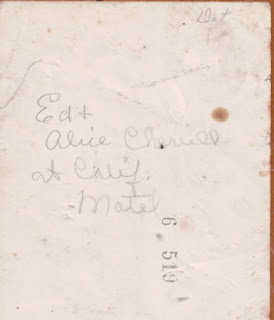 Ed +
Alice Cherrill
at Calif.
Motel
6 519